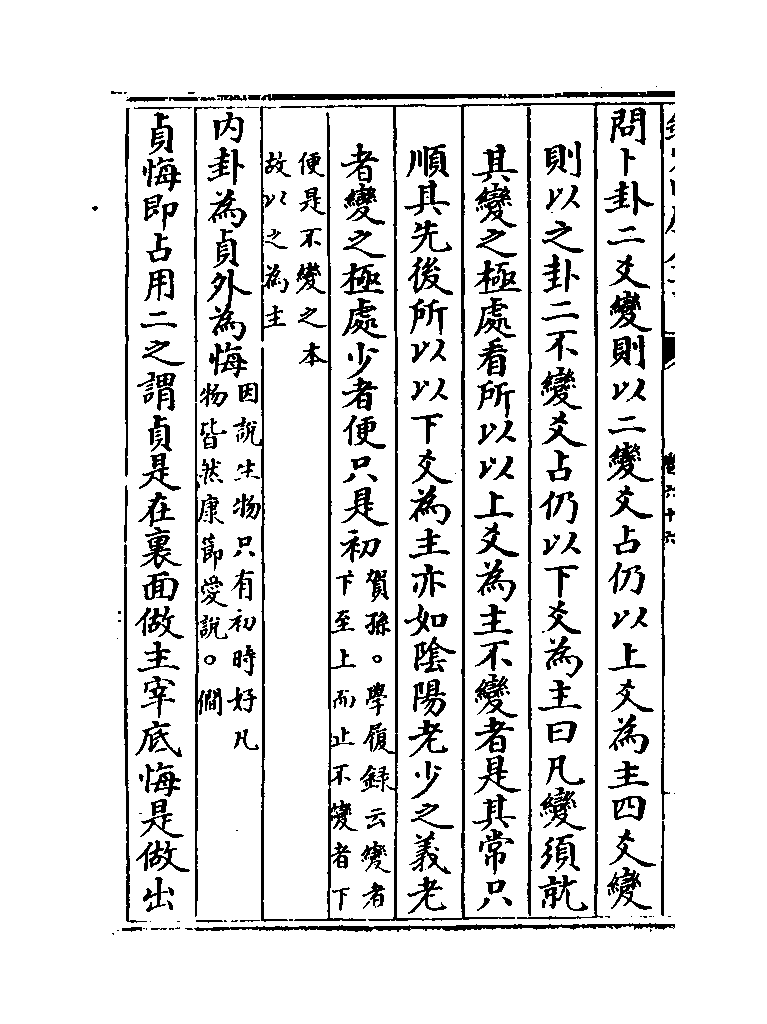 卷六十六
問卜卦二爻變則以二變爻占仍以上爻為主四爻變
則以之卦二不變爻占仍以下爻為主曰凡變須就
其變之極處看所以以上爻為主不變者是其常只
順其先後所以以下爻為主亦如陰陽老少之義老
者變之極處少者便只是初
賀孫。學履録云變者
下至上而止不變者下
便是不變之本
故以之為主
内卦為貞外為悔
因說生物只有初時好凡
物皆然康節愛說。僩
貞悔即占用二之謂貞是在裏面做主宰底悔是做出